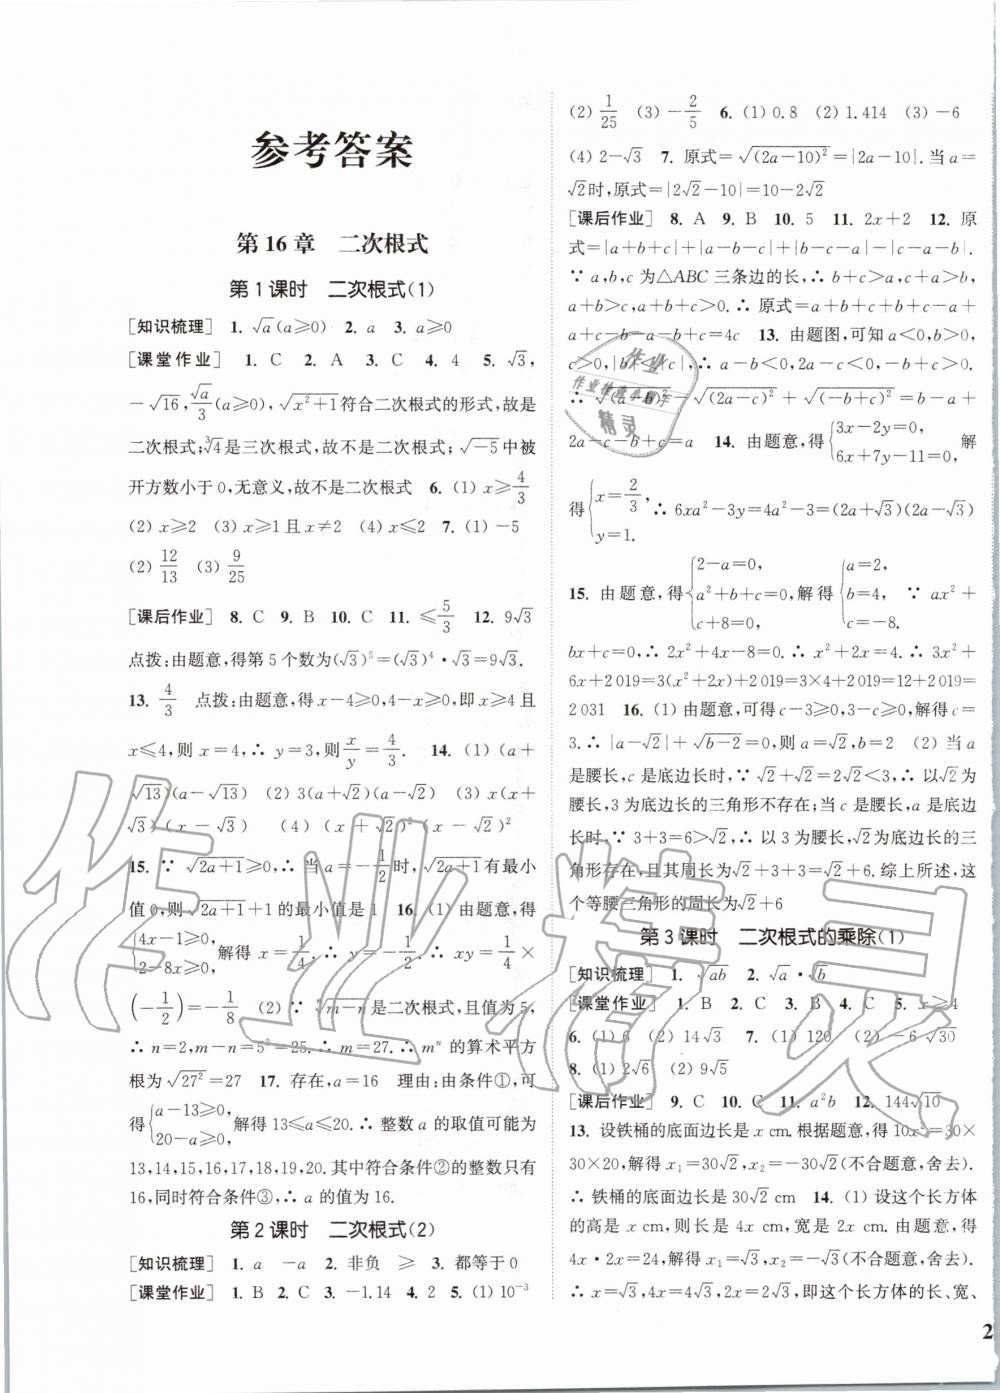 参考答案
第16章 二次根式
第1课时 二次根式(1)
[知识梳理] 1. √a(a≥0) 2. a 3. a≥0
[课堂作业] 1. C 2. A 3. C 4. 4 5. √3,
-√16, √a/3(a≥0), √(x²+1)符合二次根式的形式,故是
二次根式;∛4是三次根式,故不是二次根式;√-5中被
开方数小于0,无意义,故不是二次根式 6. (1) x≥4/3
(2) x≥2 (3) x≥1且x≠2 (4) x≤2 7. (1) -5
(2) 12/13 (3) 9/25
[课后作业] 8. C 9. B 10. C 11. ≤5/3 12. 9√3
点拨:由题意,得第5个数为(√3)⁵=(√3)⁴·√3=9√3.
13. 4/3 点拨:由题意,得x-4≥0,4-x≥0,即x≥4且
x≤4,则x=4,∴ y=3,则x/y=4/3. 14. (1) (a+
√13)(a-√13) (2) 3(a+√2)(a-√2) (3) x(x+
√3)(x-√3) (4) (x+√2)²(x-√2)²
15. ∵ √(2a+1)≥0,∴ 当a=-1/2时,√(2a+1)有最小
值0,则√(2a+1)+1的最小值是1 16. (1) 由题意,得
{4x-1≥0, 2-8x≥0, 解得x=1/4,∴ y=-1/2,∴ xy=1/4×
(-1/2)=-1/8 (2) ∵ ⁿ√(m-n)是二次根式,且值为5,
∴ n=2,m-n=5²=25.∴ m=27.∴ mⁿ的算术平方
根为√27²=27 17. 存在,a=16 理由:由条件①,可
得{a-13≥0, 20-a≥0, 解得13≤a≤20.∴ 整数a的取值可能为
13,14,15,16,17,18,19,20.其中符合条件②的整数只有
16,同时符合条件③,∴ a的值为16.
第2课时 二次根式(2)
[知识梳理] 1. a -a 2. 非负 ≥ 3. 都等于0
[课堂作业] 1. B 2. C 3. -1.14 4. 2 5. (1) 10⁻³
(2) 1/25 (3) -2/5 6. (1) 0.8 (2) 1.414 (3) -6
(4) 2-√3 7. 原式=√(2a-10)²=|2a-10|.当a=
√2时,原式=|2√2-10|=10-2√2
[课后作业] 8. A 9. B 10. 5 11. 2x+2 12. 原
式=|a+b+c|+|a-b-c|+|b-c-a|-|c-a-b|.
∵ a,b,c为△ABC三条边的长,∴ b+c>a,a+c>b,
a+b>c,a+b+c>0.∴ 原式=a+b+c+b+c-a+
a+c-b-a-b+c=4c 13. 由题图,可知a<0,b>0,
c>0,|b|<|c|,∴ a-b<0,2a-c<0,-b+c>0.
∴ √(a-b)²-√(2a-c)²+√(-b+c)²=b-a+
2a-c-b+c=a 14. 由题意,得{3x-2y=0, 6x+7y-11=0, 解
得{x=2/3, y=1. ∴ 6xa²-3y=4a²-3=(2a+√3)(2a-√3)
15. 由题意,得{2-a=0, a²+b+c=0, c+8=0, 解得{a=2, b=4, c=-8. ∵ ax²+
bx+c=0,∴ 2x²+4x-8=0.∴ x²+2x=4.∴ 3x²+
6x+2 019=3(x²+2x)+2 019=3×4+2 019=12+2 019=
2 031 16. (1) 由题意,可得c-3≥0,3-c≥0,解得c=
3.∴ |a-√2|+√(b-2)=0,则a=√2,b=2 (2) 当a
是腰长,c是底边长时,∵ √2+√2=2√2<3,∴ 以√2为
腰长,3为底边长的三角形不存在;当c是腰长,a是底边
长时,∵ 3+3=6>√2,∴ 以3为腰长,√2为底边长的三
角形存在,此时周长为√2+3+3=√2+6.综上所述,这
个等腰三角形的周长为√2+6
第3课时 二次根式的乘除(1)
[知识梳理] 1. √ab 2. √a·√b
[课堂作业] 1. B 2. B 3. C 4. C 5. x≥4
6. (1) 6 (2) 14√3 7. (1) 120 (2) -6√30
8. (1) 2√6 (2) 9√5
[课后作业] 9. C 10. C 11. a²b 12. 144√10
13. 设铁桶的底面边长是x cm.根据题意,得10x²=30×
30×20,解得x₁=30√2,x₂=-30√2(不合题意,舍去).
∴ 铁桶的底面边长是30√2 cm 14. (1) 设这个长方体
的高是x cm,则长是4x cm,宽是2x cm.由题意,得
4x·2x=24,解得x₁=√3,x₂=-√3(不合题意,舍去).
∴ x=√3,4x=4√3,2x=2√3,即这个长方体的长、宽、
2
作业精灵